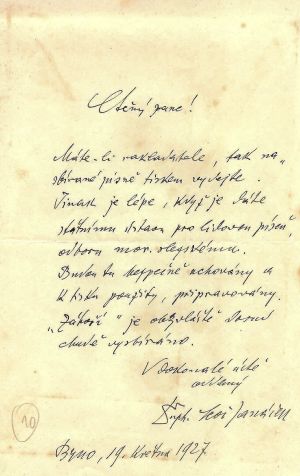 Ctěný pane!
Máte-li nakladatele, tak na-
sbírané písně tiskem vydejte.
Jinak je lépe, když je dáte
státnímu ústavu pro lidovou píseň,
odboru mor. slezskému.
Budou tu bezpečně uchovány a
k tisku použity, připravovány.
"Záhoří" je obzvláště
vybíráno.
V dokonalé úctě
oddaný
Leoš Janáček
10
Brno, 19. května 1927.